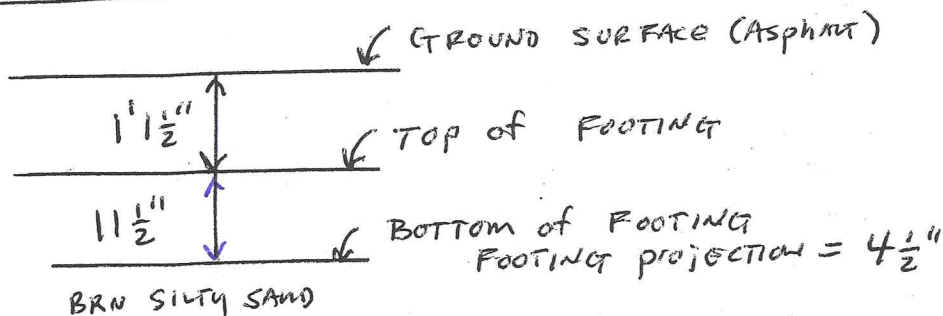 GROUND SURFACE (Asphalt)
1' 1 1/2"
TOP of FOOTING
11 1/2"
BOTTOM of FOOTING
FOOTING projection = 4 1/2"
BRN SILTY SAND